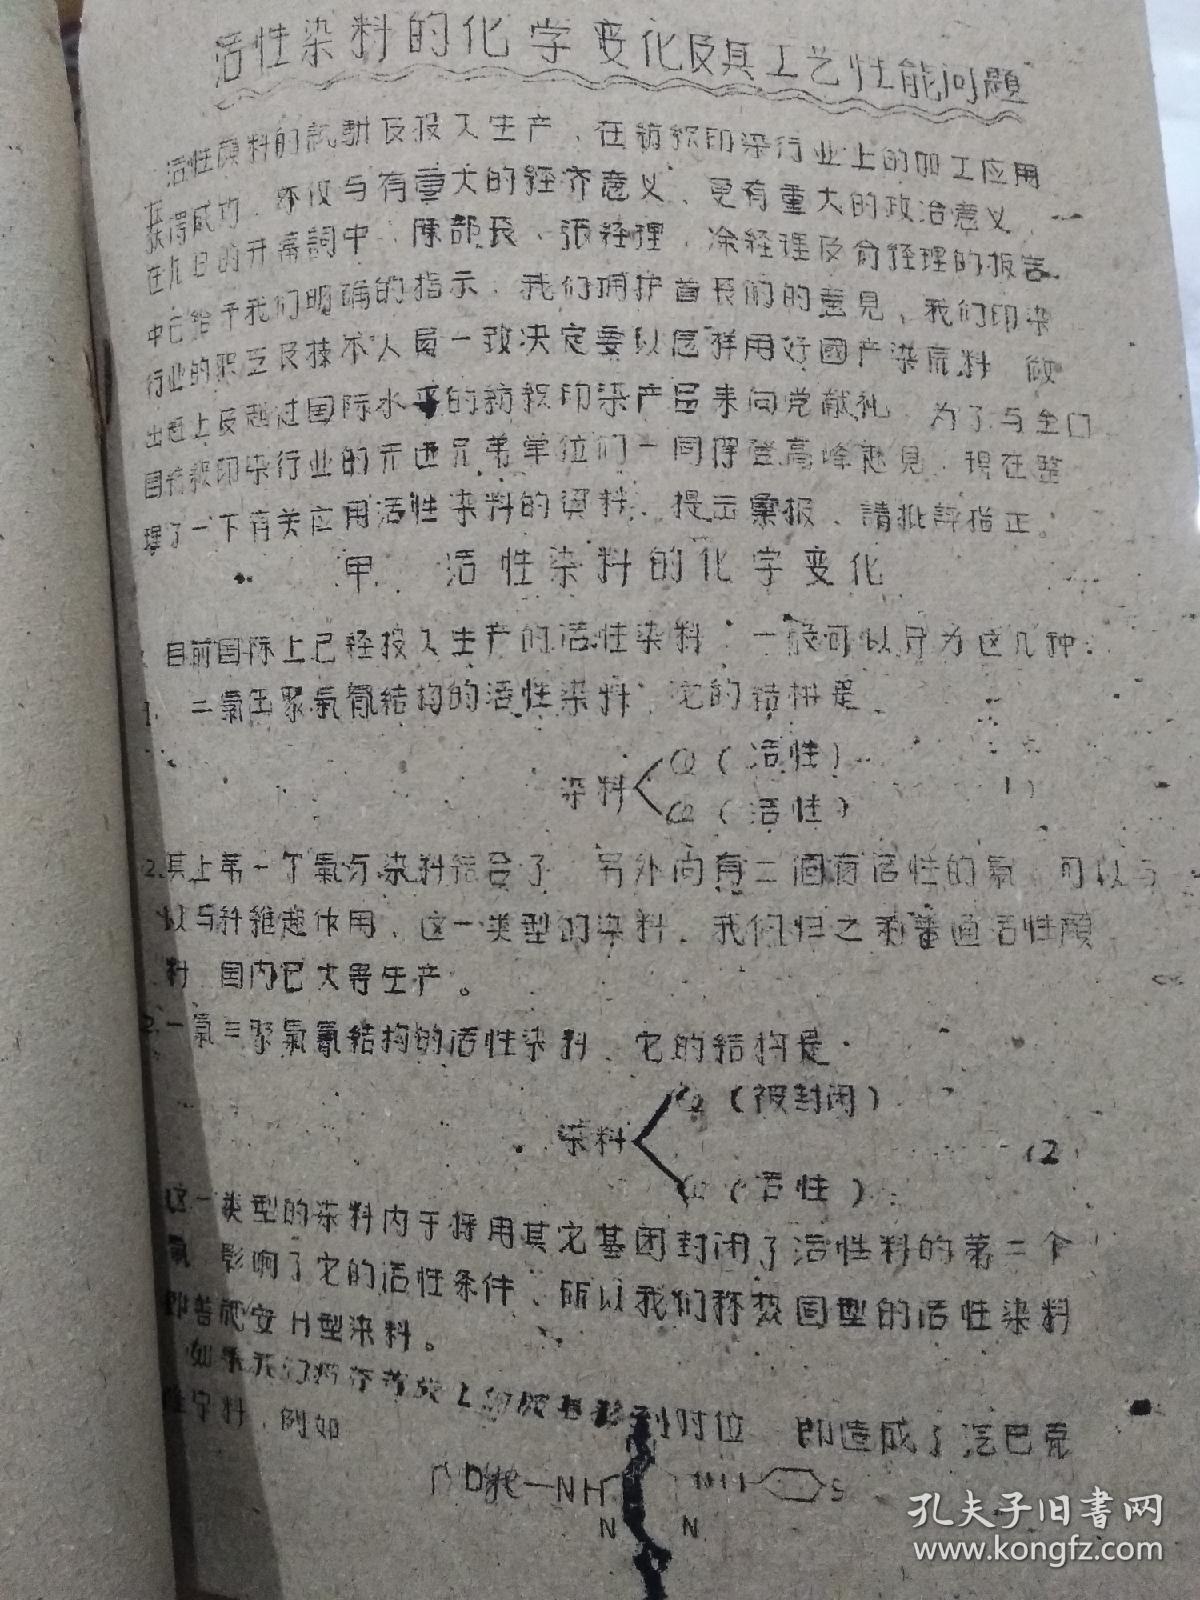 活性染料的化学变化及其工艺性能问题
活性顏料的試騐及投入生产，在紡织印染行业上的加工应用
获得成功，不仅与有重大的経济意义、更有重大的政治意义，
在九日的开幕詞中，陳部長、張経理，涂経理及俞経理的报告
中已給予我们明确的指示，我们拥护首長们的意見，我们印染
行业的职工及技术人員一致决定要以怎样用好國产染 料 做
出赶上及超过国际水平的紡织印染产品来向党献礼 为了与全
国紡织印染行业的 兄弟单位们一同得登高峰起見，現在整
理了一下有关应用活性染料的資料，提出彙报，請批評指正。
甲 活性染料的化学变化
目前国际上已経投入生产的活性染料 一般可以分为这几种：
1. 二氯 聚氰氰結构的活性染料，它的結构是
染料
Cl（活性）
Cl（活性）
1）
2.其上第一个氯与染料結合了 另外尚有二個有活性的氯 可以与
以与纤維起作用，这一类型的染料，我们归之为普通活性顏
料 国内已大 生产。
2.一氯三聚氰氰結构的活性染料，它的結构是
染料
Cl（被封闭）
Cl（活性）
（2
这一类型的染料内于採用其它基团封闭了活性料的第二个
氯 影响了它的活性条件，所以我们称热固型的活性染料
即普施安H型染料。
如果我们将 上的 移到对位 即造成了汽巴克
料，例如
NH
N
N
S
孔夫子旧书网
www.kongfz.com